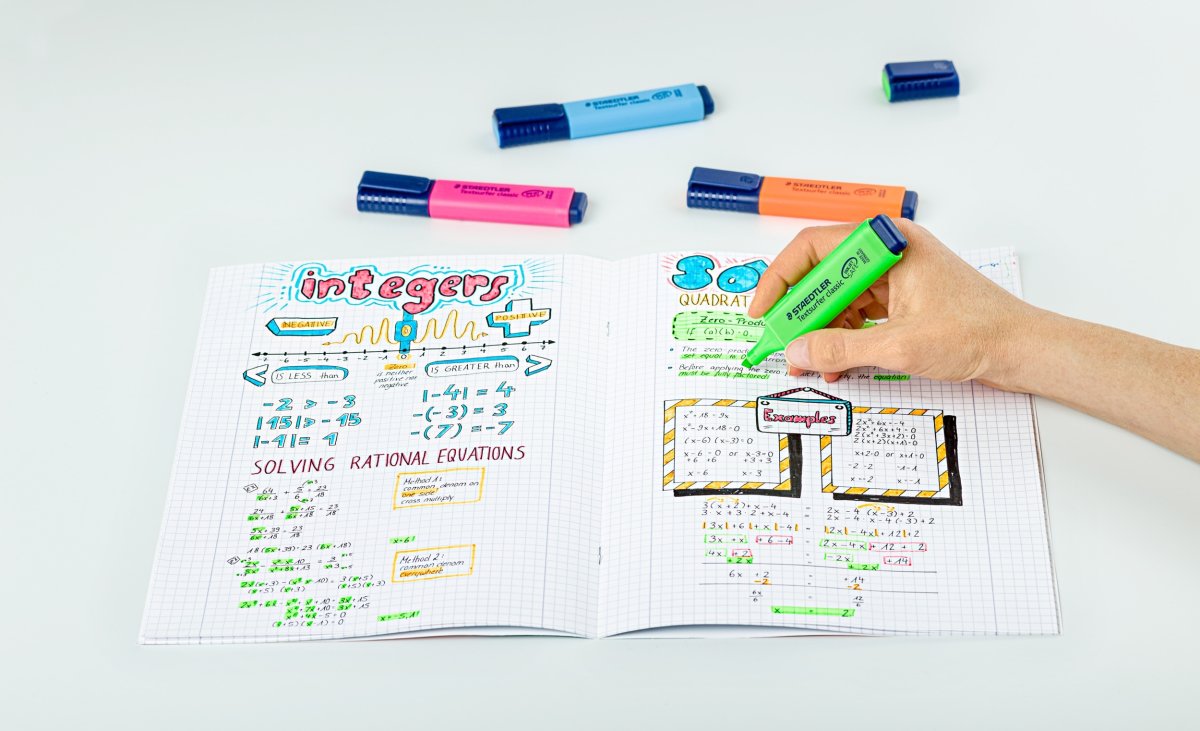 STAEDTLER
Textsurfer classic
STAEDTLER
Textsurfer classic
STAEDTLER
Textsurfer classic
STAEDTLER
Textsurfer classic
integers
NEGATIVE
POSITIVE
0
-6 -5 -4 -3 -2 -1 0 1 2 3 4 5 6 7
< IS LESS than
Zero
is neither
positive nor
negative
IS GREATER than >
-2 > -3
|15| > -15
|-1| = 1
|-4| = 4
-(-3) = 3
-(7) = -7
SOLVING RATIONAL EQUATIONS
Method 1:
common denom on
one side
cross multiply
18(5x+39)=23(6x+18)
x=6
Method 2:
common denom
everywhere
x=-5,1
QUADRAT
Zero-Produ
If (a)(b)=0,
The zero prod
set equal to 0
Before applying the zero
must be fully factored!
the equation
Examples
x²+18=9x
x²-9x+18=0
(x-6)(x-3)=0
x-6=0 or x-3=0
+6 +6 +3 +3
x=6 x=3
2x²+6x=-4
2x²+6x+4=0
2(x²+3x+2)=0
2(x+2)(x+1)=0
x+2=0 or x+1=0
-2 -2 -1 -1
x=-2 x=-1
3(x+2)+x-4 = 2x-4(x-3)+2
3·x+3·2+x-4 = 2x-4·x-4(-3)+2
3x+6+x-4 = 2x-4x+12+2
3x+x +6-4 = 2x-4x +12+2
4x +2 = -2x +14
+2x +2x
6x +2 = +14
-2 -2
6x/6 = 12/6
x = 2